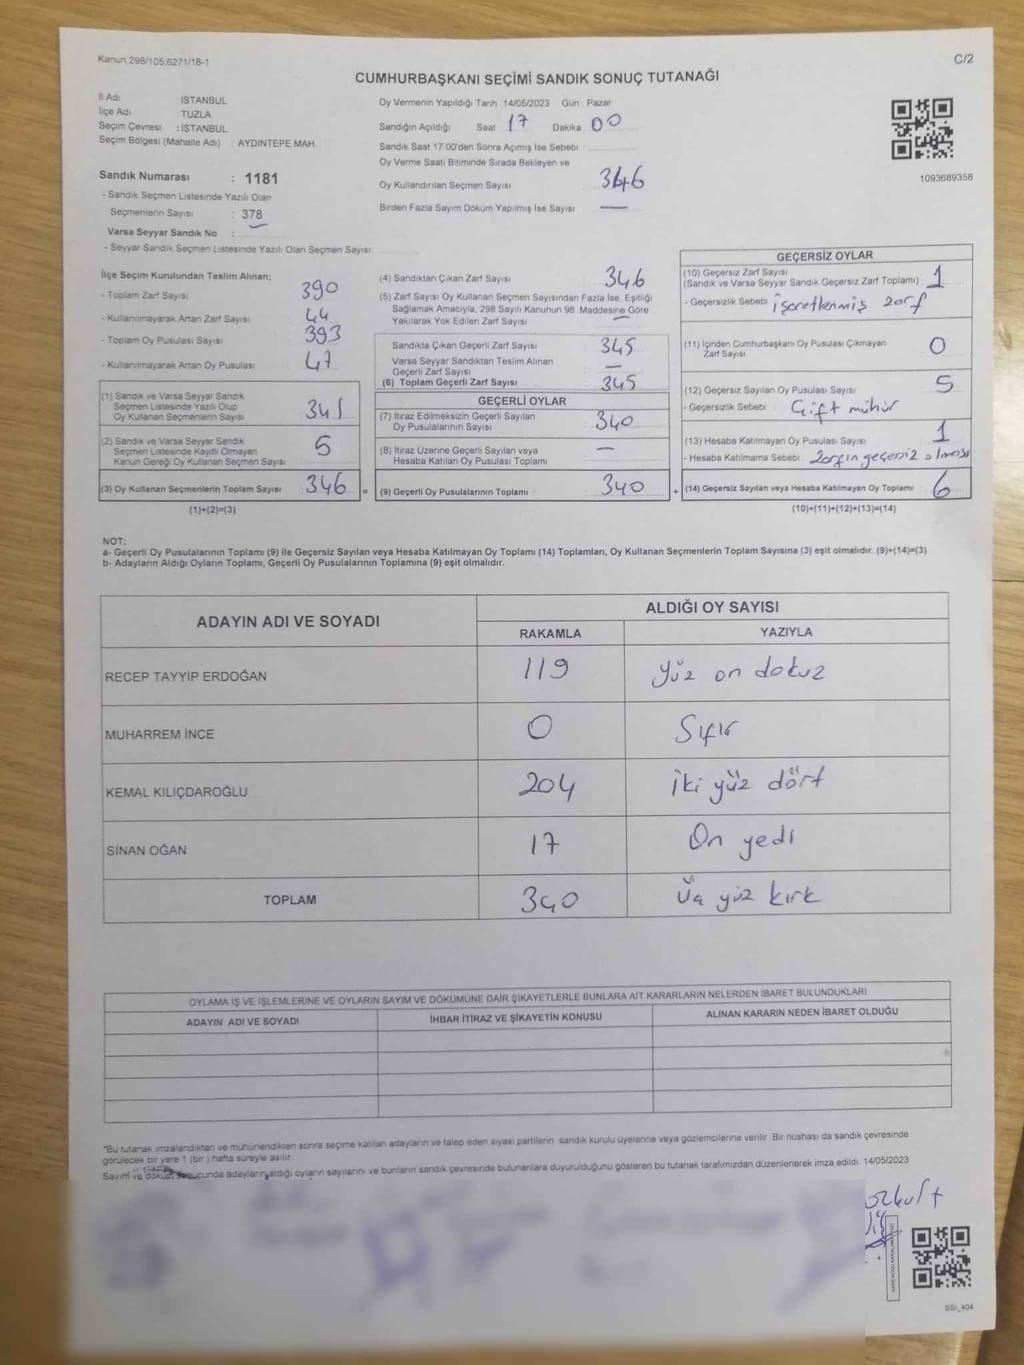 Kanun 298/105,6271/16-1
C/2
CUMHURBAŞKANI SEÇİMİ SANDIK SONUÇ TUTANAĞI
İl Adı İSTANBUL
İlçe Adı TUZLA
Seçim Çevresi : İSTANBUL
Seçim Bölgesi (Mahalle Adı) : AYDINTEPE MAH.
Sandık Numarası : 1181
- Sandık Seçmen Listesinde Yazılı Olan
Seçmenlerin Sayısı : 378
Varsa Seyyar Sandık No :
- Seyyar Sandık Seçmen Listesinde Yazılı Olan Seçmen Sayısı:
Oy Vermenin Yapıldığı Tarih 14/05/2023 Gün : Pazar
Sandığın Açıldığı Saat 17 Dakika 00
Sandık Saat 17:00'den Sonra Açımış İse Sebebi :
Oy Verme Saati Bitiminde Sırada Bekleyen ve
Oy Kullandırılan Seçmen Sayısı 346
Birden Fazla Sayım Döküm Yapılmış İse Sayısı —
1093689358
İlçe Seçim Kurulundan Teslim Alınan;
- Toplam Zarf Sayısı 390
- Kullanılmayarak Artan Zarf Sayısı 44
- Toplam Oy Pusulası Sayısı 393
- Kullanılmayarak Artan Oy Pusulası 47
(1) Sandık ve Varsa Seyyar Sandık
Seçmen Listesinde Yazılı Olup
Oy Kullanan Seçmenlerin Sayısı 341
(2) Sandık ve Varsa Seyyar Sandık
Seçmen Listesinde Kayıtlı Olmayan
Kanun Gereği Oy Kullanan Seçmen Sayısı 5
(3) Oy Kullanan Seçmenlerin Toplam Sayısı 346 =
(1)+(2)=(3)
(4) Sandıktan Çıkan Zarf Sayısı 346
(5) Zarf Sayısı Oy Kullanan Seçmen Sayısından Fazla İse, Eşitliği
Sağlamak Amacıyla, 298 Sayılı Kanunun 98 Maddesine Göre
Yakılarak Yok Edilen Zarf Sayısı —
Sandıkta Çıkan Geçerli Zarf Sayısı 345
Varsa Seyyar Sandıktan Teslim Alınan
Geçerli Zarf Sayısı —
(6) Toplam Geçerli Zarf Sayısı 345
GEÇERLİ OYLAR
(7) İtiraz Edilmeksizin Geçerli Sayılan
Oy Pusulalarının Sayısı 340
(8) İtiraz Üzerine Geçerli Sayılan veya
Hesaba Katılan Oy Pusulası Toplamı —
(9) Geçerli Oy Pusulalarının Toplamı 340 +
GEÇERSİZ OYLAR
(10) Geçersiz Zarf Sayısı
(Sandık ve Varsa Seyyar Sandık Geçersiz Zarf Toplamı) 1
- Geçersizlik Sebebi İşeretlenmiş zarf
(11) İçinden Cumhurbaşkanı Oy Pusulası Çıkmayan
Zarf Sayısı 0
(12) Geçersiz Sayılan Oy Pusulası Sayısı 5
- Geçersizlik Sebebi Çift mühür
(13) Hesaba Katılmayan Oy Pusulası Sayısı 1
- Hesaba Katılmama Sebebi Zarfın geçersiz olması
(14) Geçersiz Sayılan veya Hesaba Katılmayan Oy Toplamı 6
(10)+(11)+(12)+(13)=(14)
NOT:
a- Geçerli Oy Pusulalarının Toplamı (9) ile Geçersiz Sayılan veya Hesaba Katılmayan Oy Toplamı (14) Toplamları, Oy Kullanan Seçmenlerin Toplam Sayısına (3) eşit olmalıdır. (9)+(14)=(3)
b- Adayların Aldığı Oyların Toplamı, Geçerli Oy Pusulalarının Toplamına (9) eşit olmalıdır.
ADAYIN ADI VE SOYADI
ALDIĞI OY SAYISI
RAKAMLA YAZIYLA
RECEP TAYYİP ERDOĞAN 119 yüz on dokuz
MUHARREM İNCE 0 Sıfır
KEMAL KILIÇDAROĞLU 204 İki yüz dört
SİNAN OĞAN 17 On yedi
TOPLAM 340 Üç yüz kırk
OYLAMA İŞ VE İŞLEMLERİNE VE OYLARIN SAYIM VE DÖKÜMÜNE DAİR ŞİKAYETLERLE BUNLARA AİT KARARLARIN NELERDEN İBARET BULUNDUKLARI
ADAYIN ADI VE SOYADI İHBAR İTİRAZ VE ŞİKAYETİN KONUSU ALINAN KARARIN NEDEN İBARET OLDUĞU
*Bu tutanak imzalandıktan ve mühürlendikten sonra seçime katılan adayların ve talep eden siyasi partilerin sandık kurulu üyelerine veya gözlemcilerine verilir. Bir nüshası da sandık çevresinde
görülecek bir yere 1 (bir) hafta süreyle asılır.
Sayım ve döküm sonucunda adayların aldığı oyların sayılarını ve bunların sandık çevresinde bulunanlara duyurulduğunu gösteren bu tutanak tarafımızdan düzenlenerek imza edildi. 14/05/2023
SSİ_404